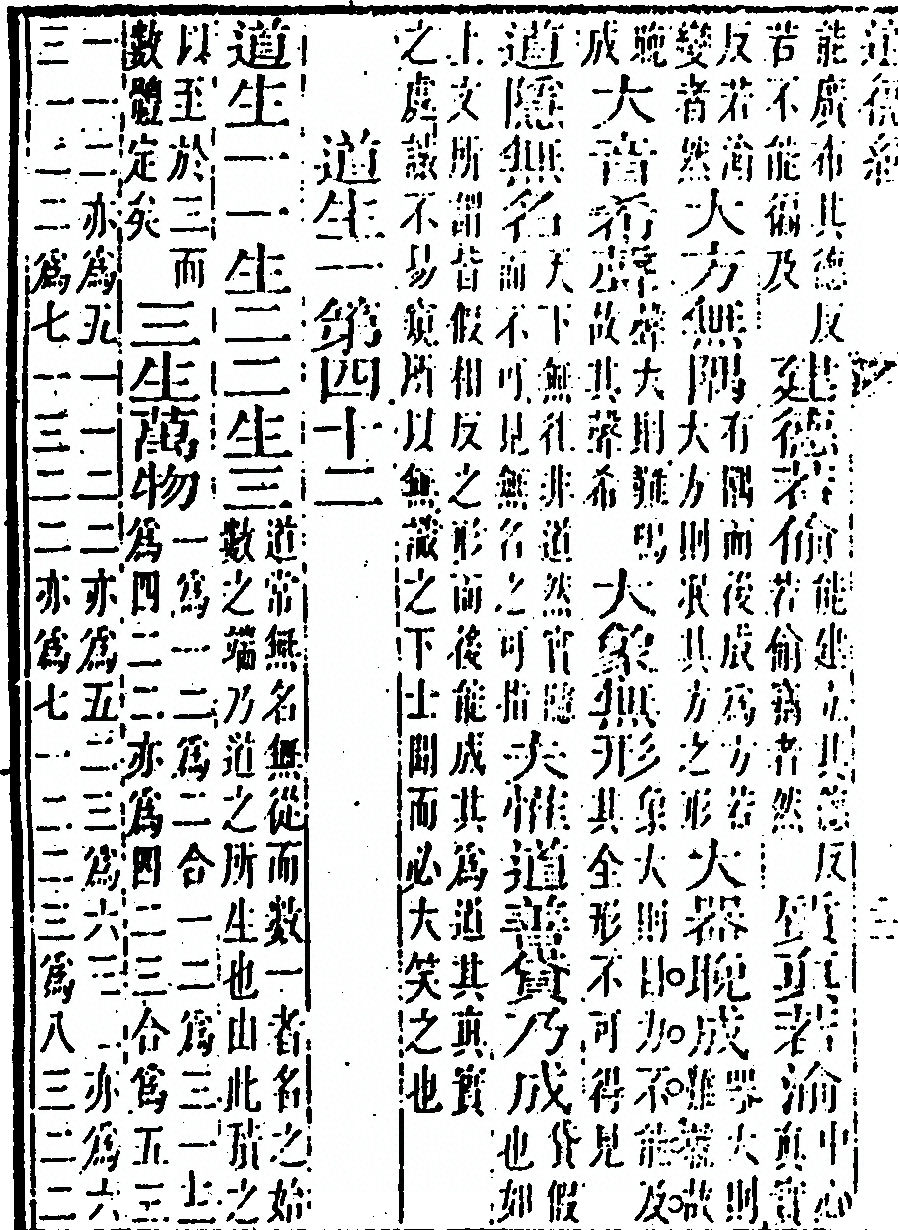 能廣布其德反
若不能徧及
建德若偷
能建立其德反
若偷竊者然
質真若渝
中心
真實
反若渝
變者然
大方無隅
有隅而後成為方若
大方則泯其方之形
大器晚成
器大則
難驟故
晚
成
大音希聲
聲大則難鳴
故其聲希
大象無形
象大則目力不能及
其全形不可得見
道隱無名
天下無往非道然實隱
而不可見無名之可指
夫惟道善貸乃成
貸假
也如
上文所謂皆假相反之形而後能成其為道其真實
之處誠不易窺所以無識之下士聞而必大笑之也
道生一第四十二
道生一一生二二生三
道常無名無從而數一者名之始
數之端乃道之所生也由此積之
以至於三而
數體定矣
三生萬物
一為一二為二合一二為三一上
為四二二亦為四二三合為五三
一一二亦為五一一二二亦為五二三為六三亦為六
三一一二為七一三二二亦為七一二二三為八三二二